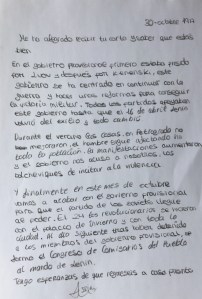 30-octubre 1917
Me ha alegrado recibir tu carta y saber que estás
bien.
En el gobierno provisional primero estaba
por Lvov y después por Kerenski, este
gobierno se ha centrado en continuar con la
guerra y hacer unas reformas para conseguir
la victoria militar. Todos los partidos apoyaban
este gobierno hasta que el 16 de abril Lenin
del exilio y todo cambió.
Durante el verano las cosas en Petrogrado no
mejoraron, el hambre sigue afectando a
toda la población, las manifestaciones aumentaron
y el gobierno nos acusó a nosotros, los
bolcheviques de incitar a la violencia.
Y finalmente en este mes de octubre
vamos a acabar con el gobierno provisional
para que el partido de los soviets llegue
al poder. El 24 los revolucionarios se
con el palacio de invierno y con toda la
ciudad. Al día siguiente
a los miembros del gobierno provisional, se
formó el Congreso de Comisarios del Pueblo
al mando de Lenin.
Tengo esperanzas de que regreses a casa pronto.